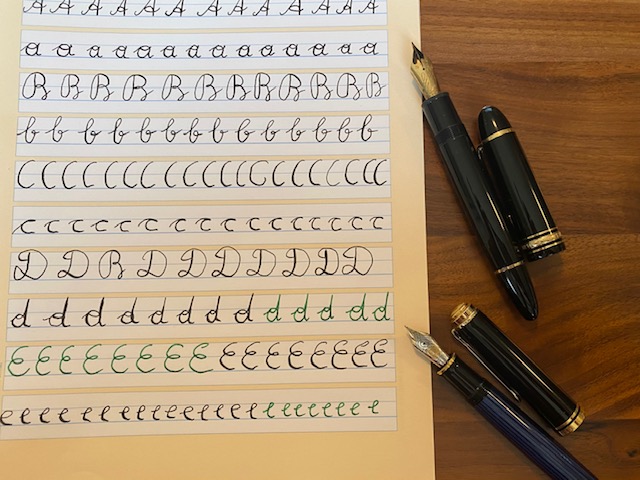 A A A A A A A A A A A A A
a a a a a a a a a a a a a a
B B B B B B B B B B B B
b b b b b b b b b b b b b b
C C C C C C C C C C C C C C C C C C C
c c c c c c c c c c c c c c c
D D B D D D D D D D
d d d d d d d d d d d d d
E E E E E E E E E E E E E E E E
e e e e e e e e e e e e e e e e e e e e e